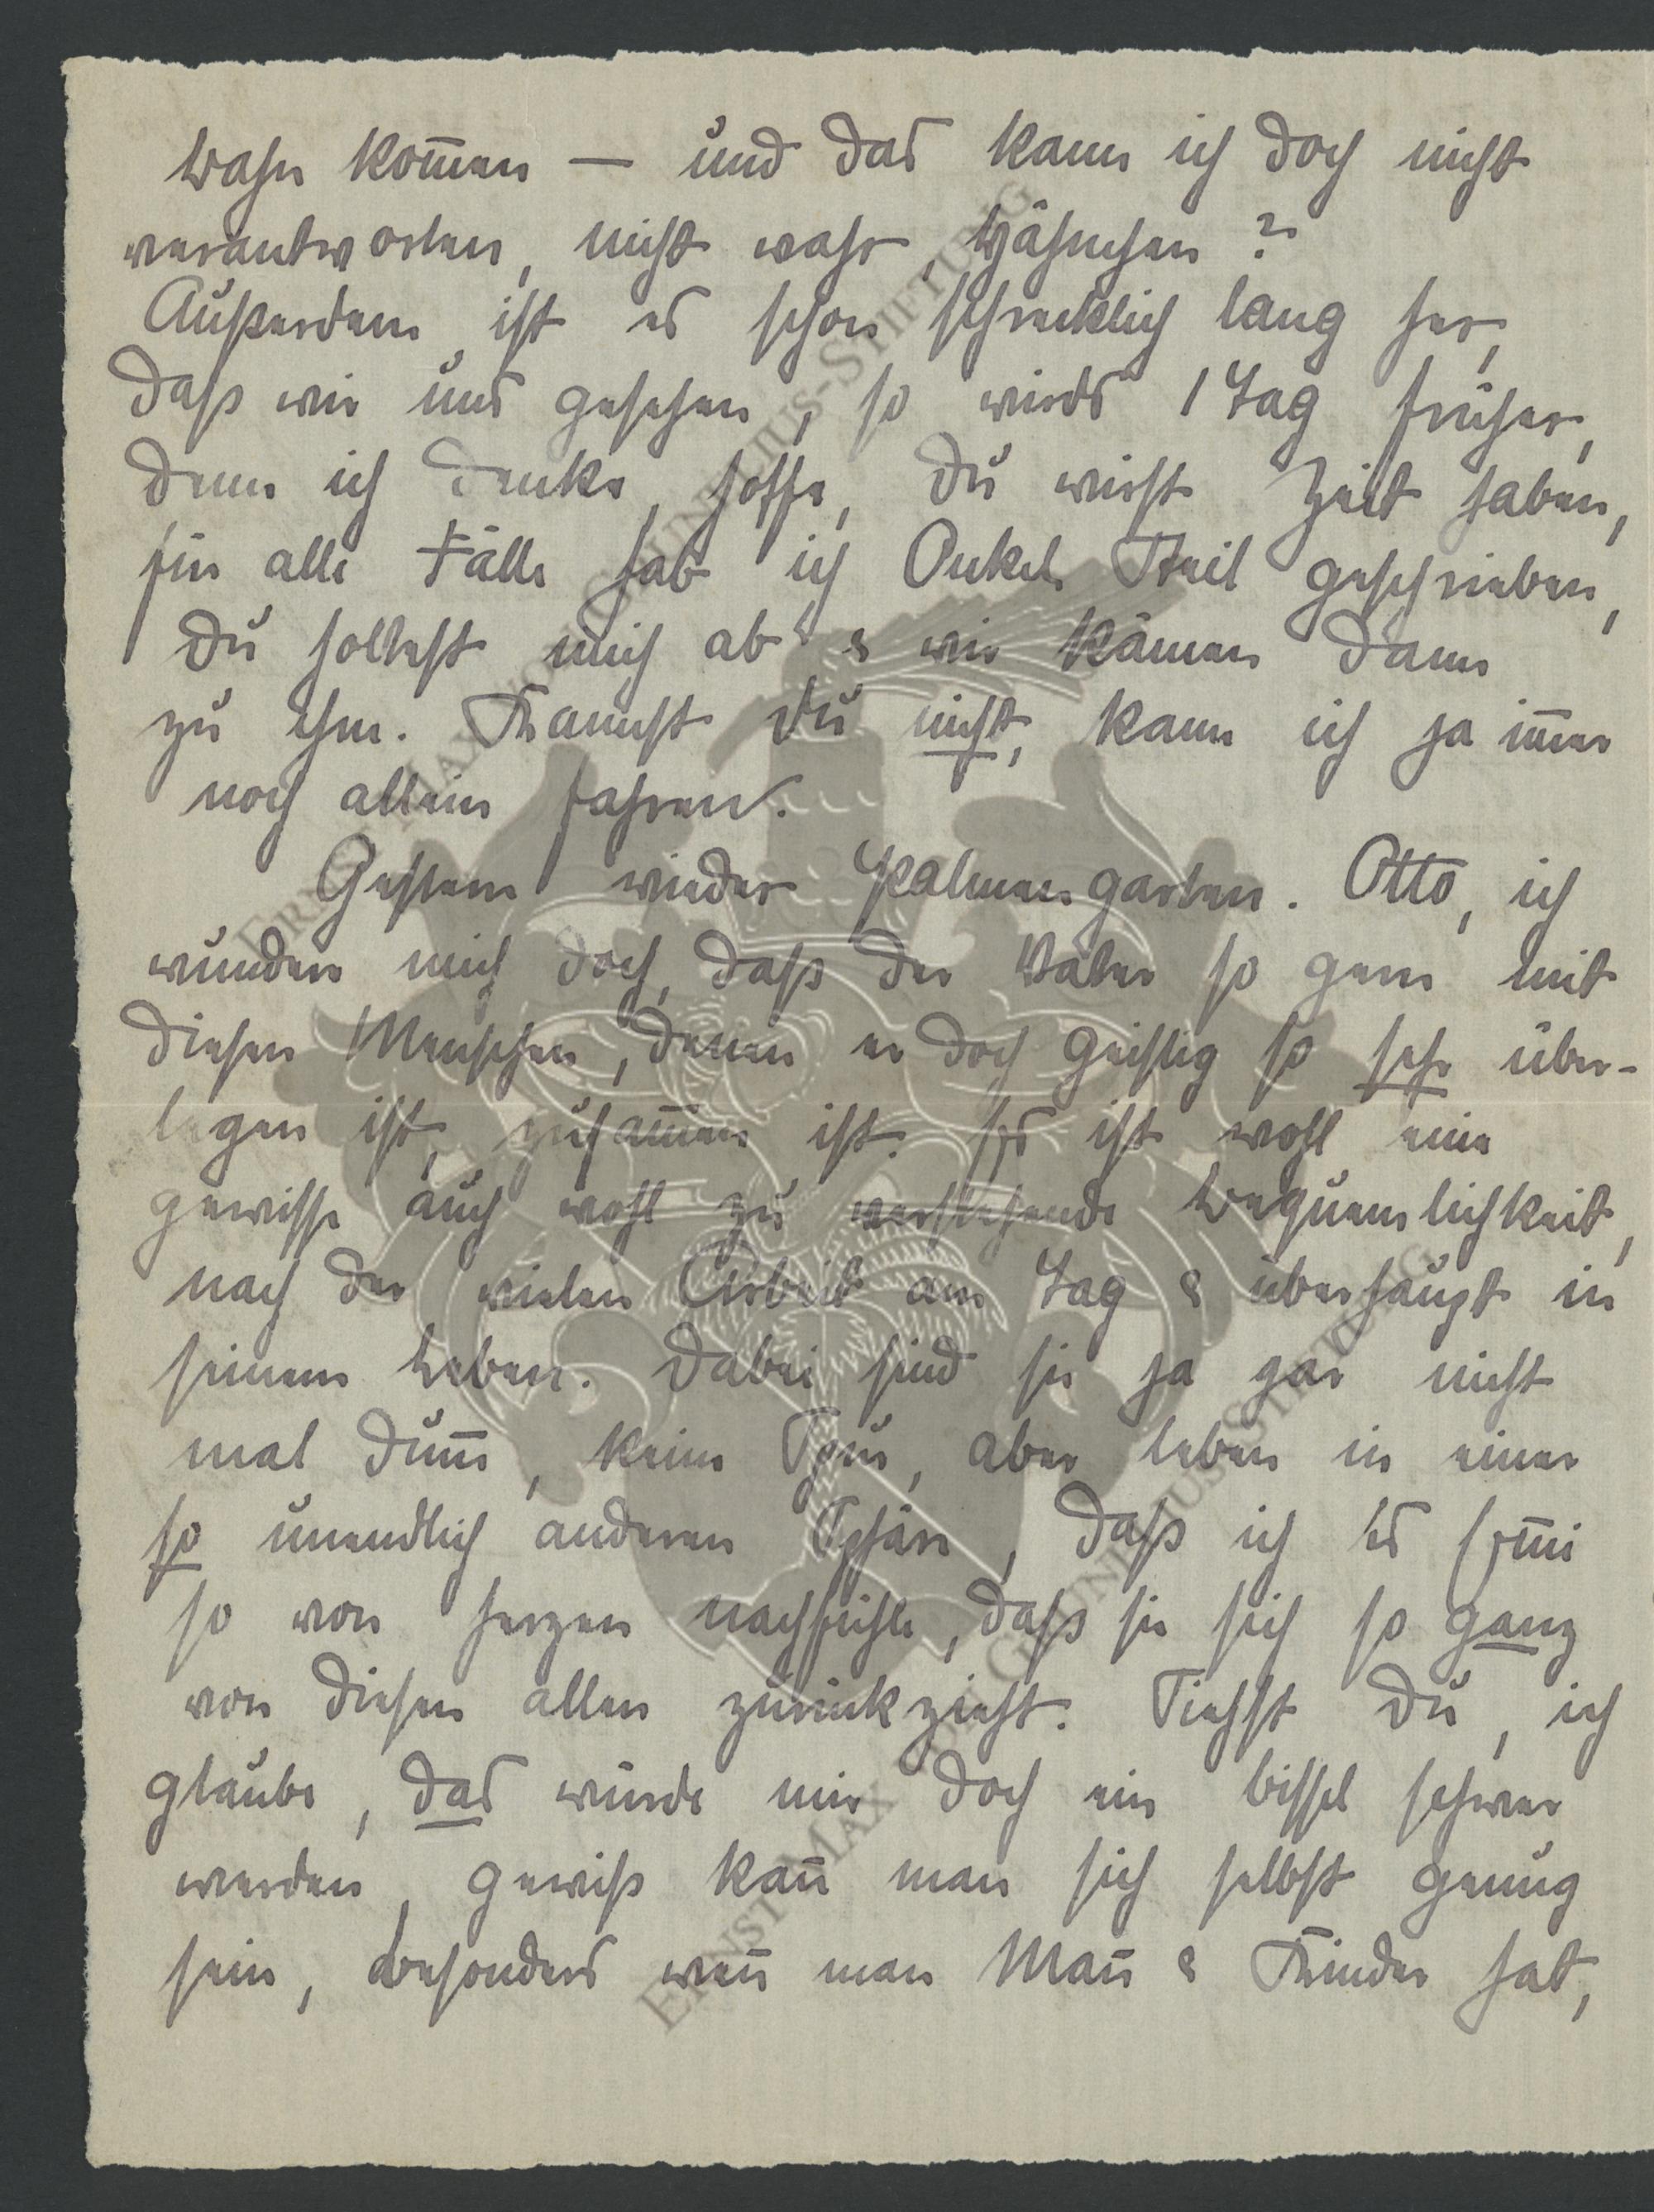 Bahn kom̅en — und das kann ich doch nicht
verantworten, nicht wahr, Hähnchen?
Außerdem ist es schon schrecklich lang her,
daß wir uns gesehen, so wirds 1 Tag früher,
denn ich denke, hoffe, Du wirst Zeit haben,
für alle Fälle hab ich Onkel geschrieben,
Du holtest mich ab & wir kämen dann
zu ihm. Kannst Du nicht, kann ich ja im̅er
noch allein fahren.
Gestern wieder Palmengarten. Otto, ich
wundere mich doch, daß der Vater so gern mit
diesen Menschen, denen er doch geistig so sehr über-
legen ist, zusam̅en ist. Es ist wohl eine
gewisse auch wohl zu verstehende Bequemlichkeit,
nach der vielen Arbeit am Tag & überhaupt in
seinem Leben. Dabei sind sie ja gar nicht
mal dum̅, keine Spur, aber leben in einer
so unendlich anderen Sphäre, daß ich es Em̅i
so von Herzen nachfühle, daß sie sich so ganz
von diesen allen zurückzieht. Siehst Du, ich
glaube, das würde mir doch ein bissel schwer
werden, gewiß kan̅ man sich selbst genug
sein, besonders wen̅ man Man̅ & Kinder hat,
ERNST MAX VON GRUNELIUS-STIFTUNG
ERNST MAX VON GRUNELIUS-STIFTUNG